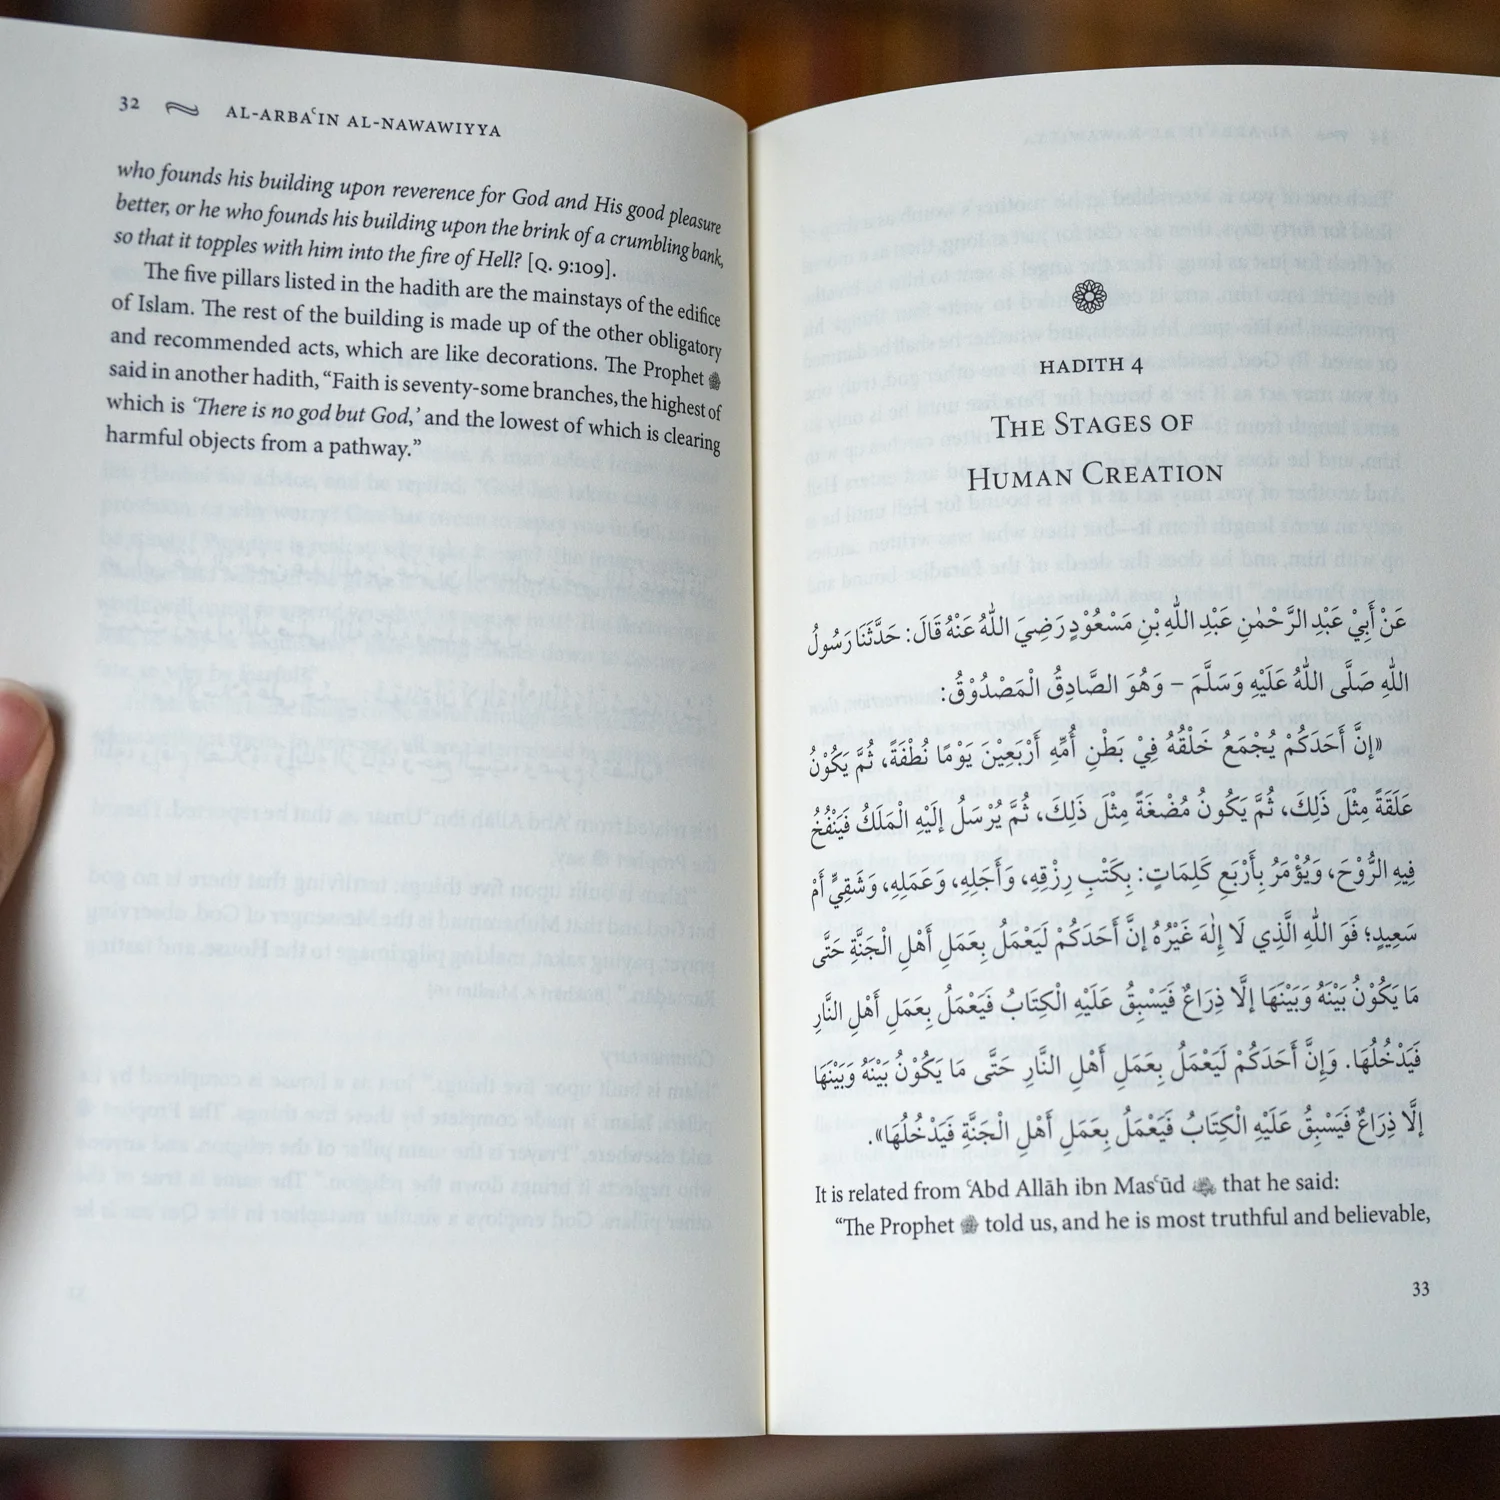 32 AL-ARBAʿIN AL-NAWAWIYYA
who founds his building upon reverence for God and His good pleasure
better, or he who founds his building upon the brink of a crumbling bank,
so that it topples with him into the fire of Hell? [Q. 9:109].
The five pillars listed in the hadith are the mainstays of the edifice
of Islam. The rest of the building is made up of the other obligatory
and recommended acts, which are like decorations. The Prophet ﷺ
said in another hadith, “Faith is seventy-some branches, the highest of
which is ‘There is no god but God,’ and the lowest of which is clearing
harmful objects from a pathway.”
HADITH 4
THE STAGES OF
HUMAN CREATION
عَنْ أَبِيْ عَبْدِ الرَّحْمٰنِ عَبْدِ اللهِ بْنِ مَسْعُوْدٍ رَضِيَ اللهُ عَنْهُ قَالَ: حَدَّثَنَا رَسُولُ
اللهِ صَلَّى اللهُ عَلَيْهِ وَسَلَّمَ – وَهُوَ الصَّادِقُ الْمَصْدُوْقُ:
«إِنَّ أَحَدَكُمْ يُجْمَعُ خَلْقُهُ فِيْ بَطْنِ أُمِّهِ أَرْبَعِيْنَ يَوْمًا نُطْفَةً، ثُمَّ يَكُوْنُ
عَلَقَةً مِثْلَ ذَلِكَ، ثُمَّ يَكُونُ مُضْغَةً مِثْلَ ذَلِكَ، ثُمَّ يُرْسَلُ إِلَيْهِ الْمَلَكُ فَيَنْفُخُ
فِيهِ الرُّوْحَ، وَيُؤْمَرُ بِأَرْبَعِ كَلِمَاتٍ: بِكَتْبِ رِزْقِهِ، وَأَجَلِهِ، وَعَمَلِهِ، وَشَقِيٌّ أَمْ
سَعِيدٍ؛ فَوَ اللهِ الَّذِي لَا إِلٰهَ غَيْرُهُ إِنَّ أَحَدَكُمْ لَيَعْمَلُ بِعَمَلِ أَهْلِ الْجَنَّةِ حَتَّى
مَا يَكُوْنُ بَيْنَهُ وَبَيْنَهَا إِلَّا ذِرَاعٌ فَيَسْبِقُ عَلَيْهِ الْكِتَابُ فَيَعْمَلُ بِعَمَلِ أَهْلِ النَّارِ
فَيَدْخُلُهَا. وَإِنَّ أَحَدَكُمْ لَيَعْمَلُ بِعَمَلِ أَهْلِ النَّارِ حَتَّى مَا يَكُوْنُ بَيْنَهُ وَبَيْنَهَا
إِلَّا ذِرَاعٌ فَيَسْبِقُ عَلَيْهِ الْكِتَابُ فَيَعْمَلُ بِعَمَلِ أَهْلِ الْجَنَّةِ فَيَدْخُلُهَا».
It is related from ʿAbd Allāh ibn Masʿūd that he said:
“The Prophet ﷺ told us, and he is most truthful and believable,
33